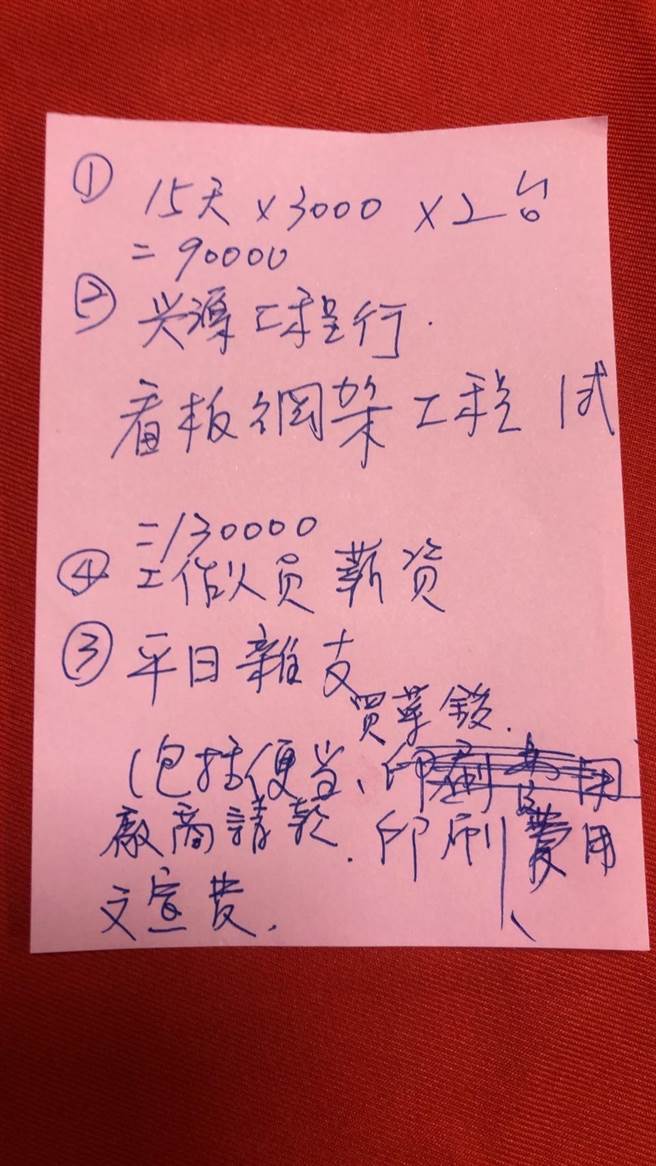 ① 15天×3000×2台
=90000
② 兴源工程行.
看板鋼架工程 1式
=130000
④ 工作人员薪资
③ 平日雜支
買菜錢.
(包括便当、印刷
廠商請款.印刷費用、
文宣費.